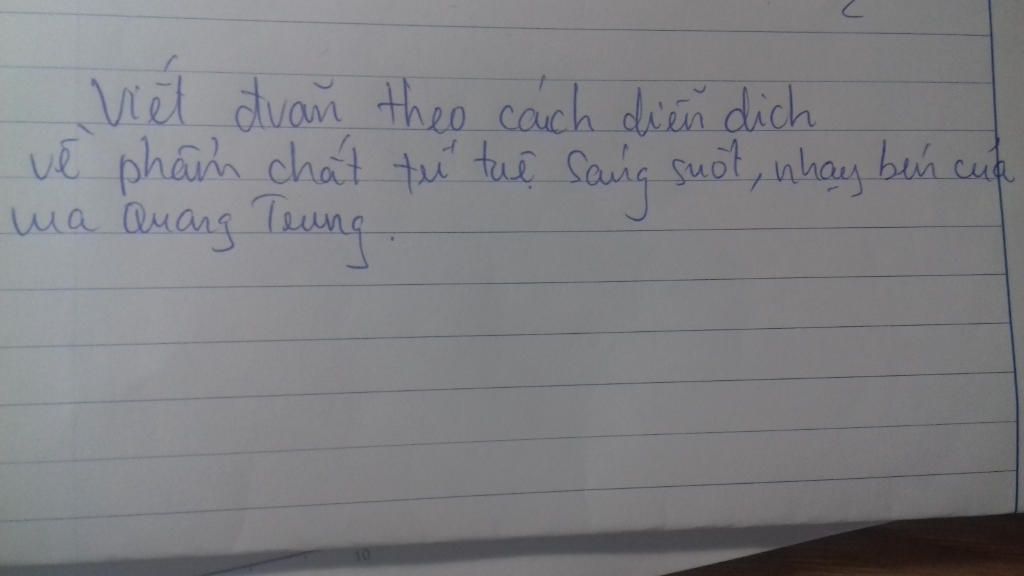 Viết đvăn theo cách diễn dịch
về phẩm chất trí tuệ sáng suốt, nhạy bén của
vua Quang Trung.